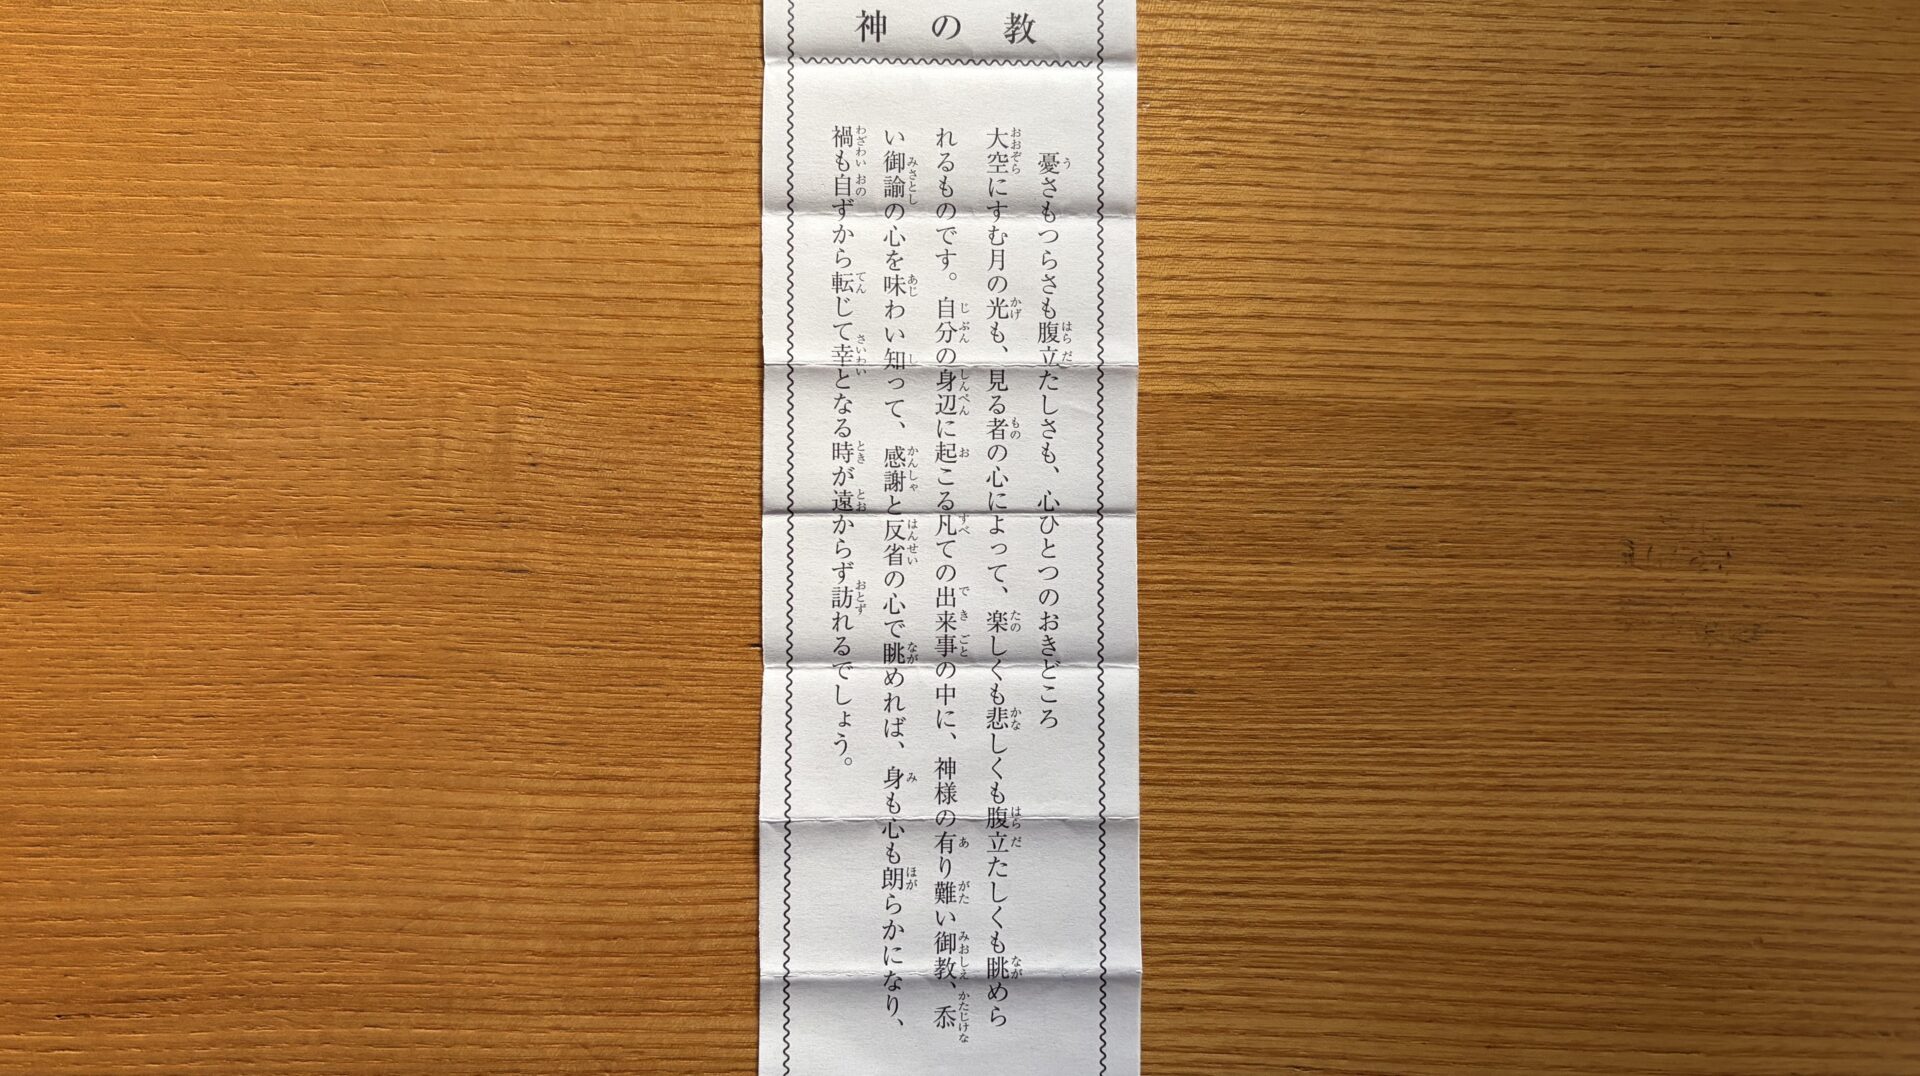 神の教
憂さもつらさも腹立たしさも、心ひとつのおきどころ
大空にすむ月の光も、見る者の心によって、楽しくも悲しくも腹立たしくも眺めら
れるものです。自分の身辺に起こる凡ての出来事の中に、神様の有り難い御教、忝
い御諭の心を味わい知って、感謝と反省の心で眺めれば、身も心も朗らかになり、
禍も自ずから転じて幸となる時が遠からず訪れるでしょう。